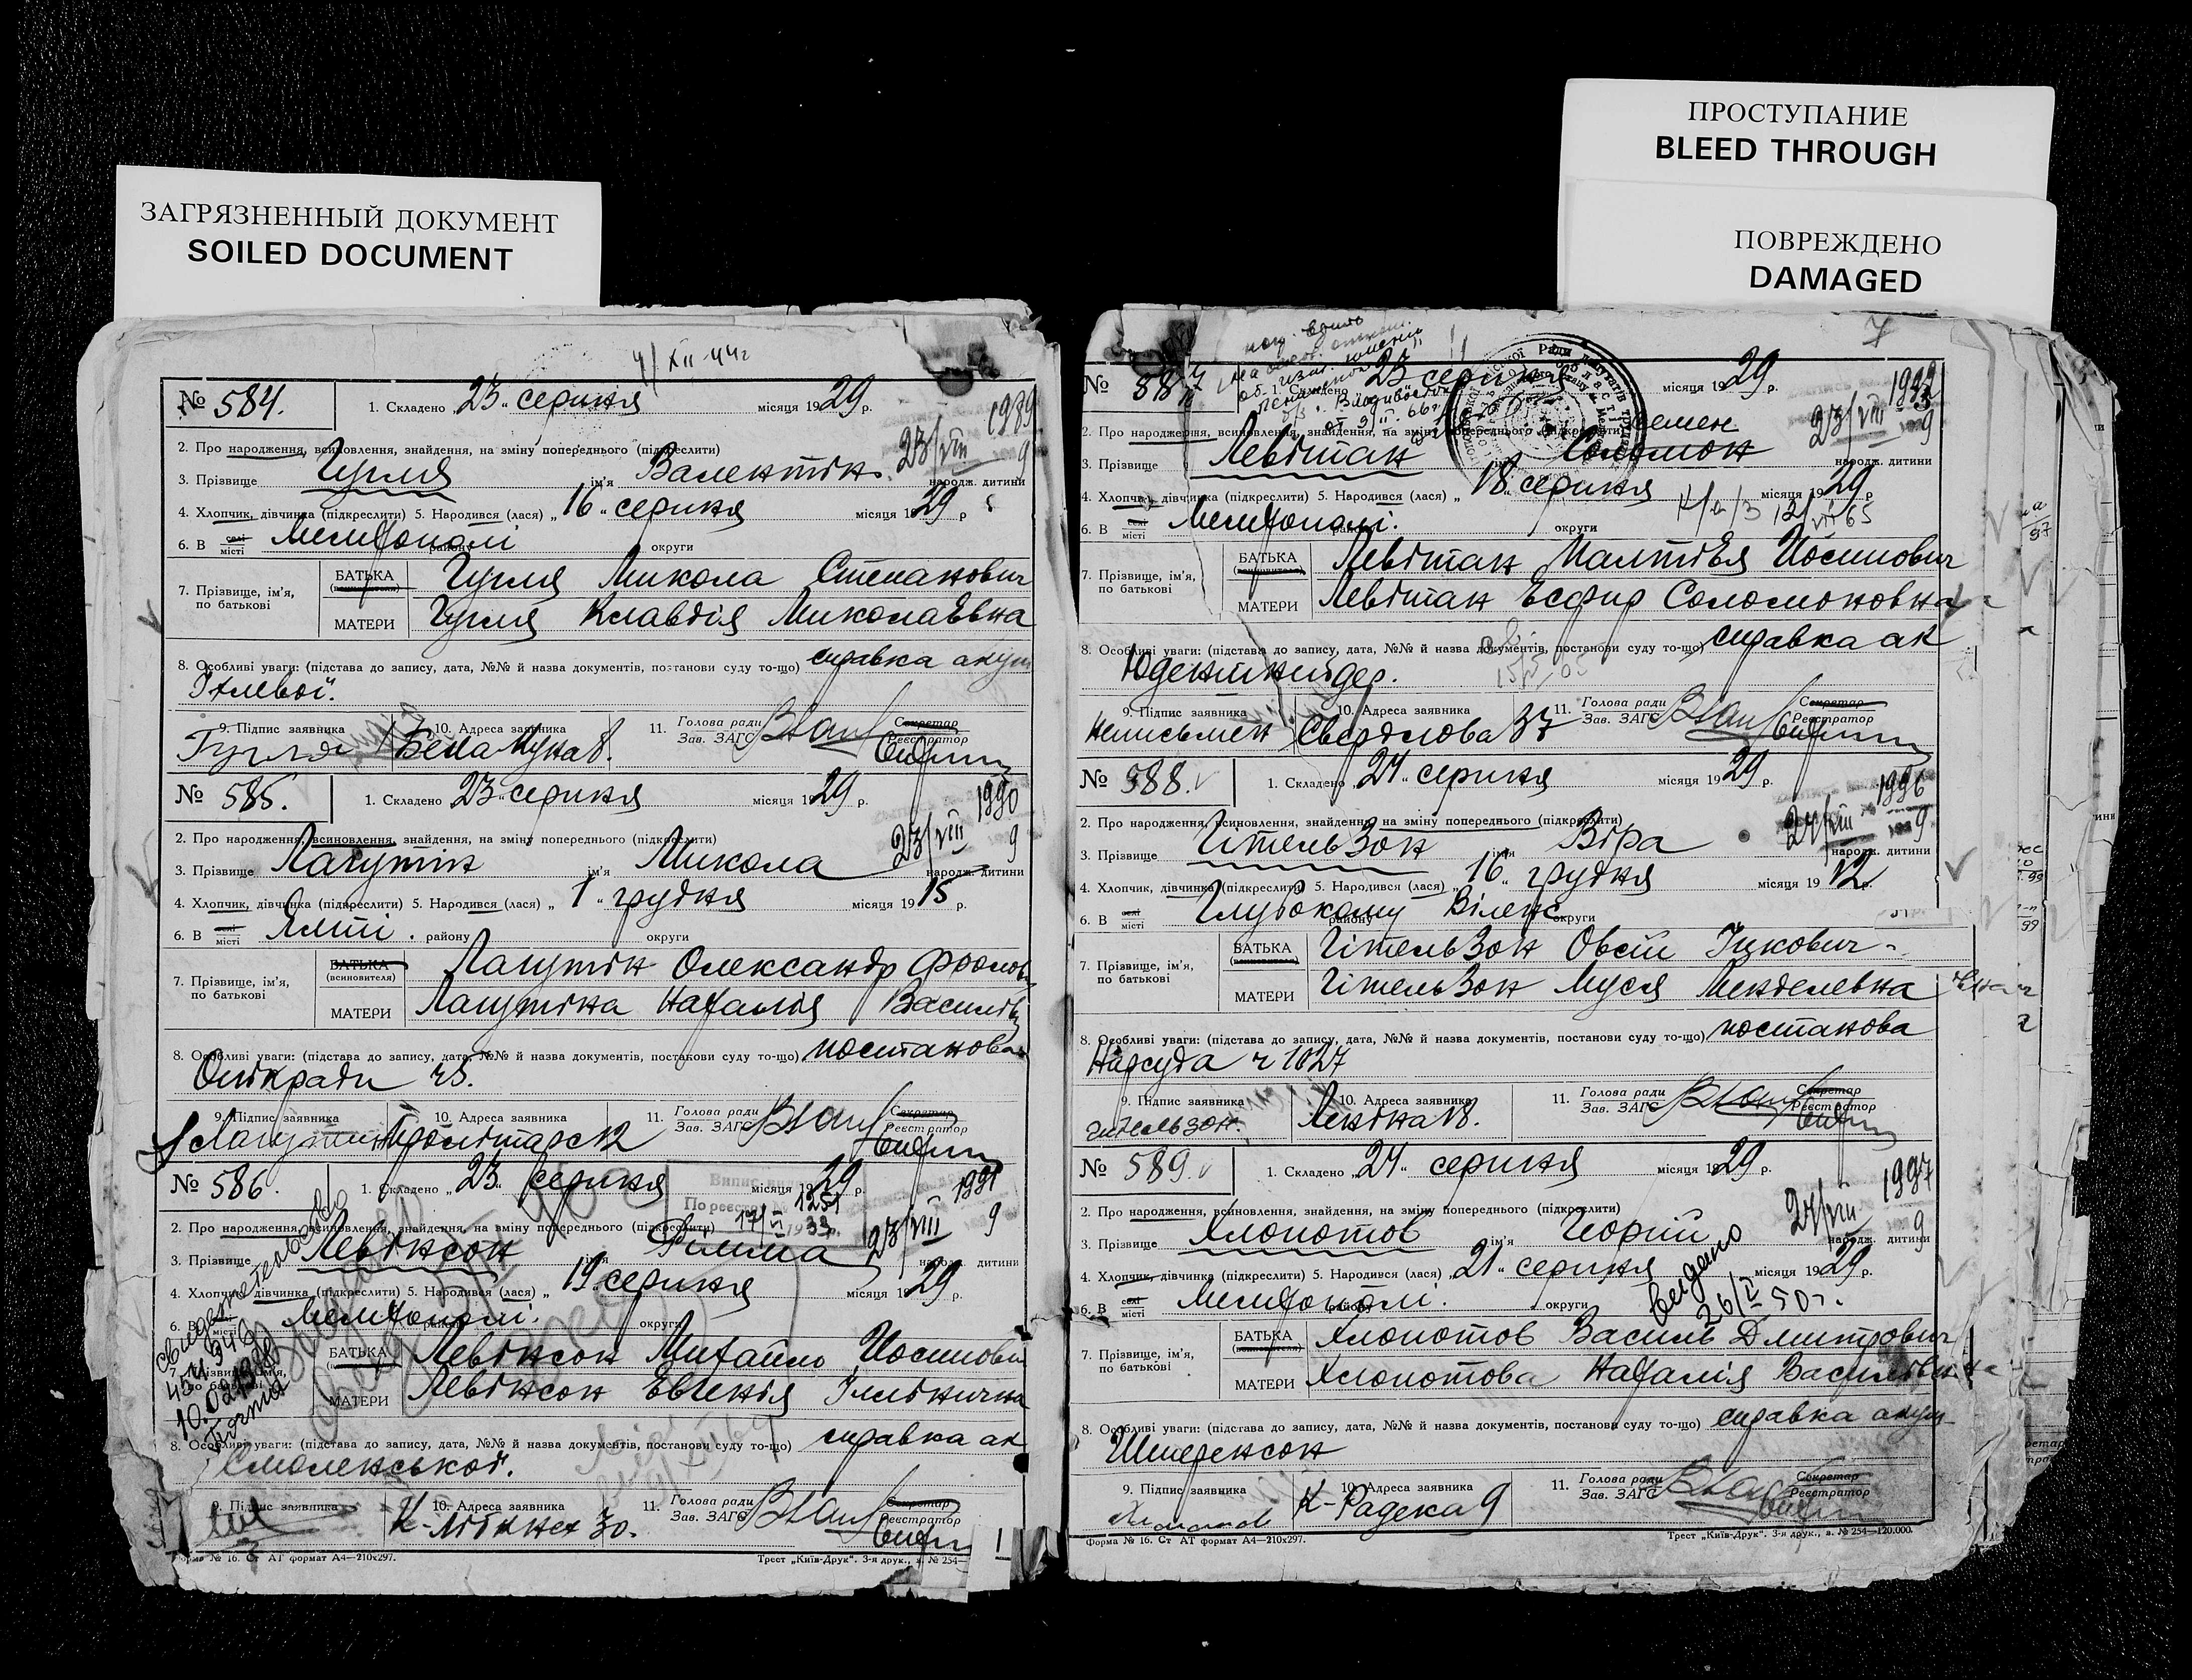 ЗАГРЯЗНЕННЫЙ ДОКУМЕНТ
SOILED DOCUMENT
4/XII 44г
№ 584. 1. Складено „23“ серпня місяця 1929 р.
1989
2. Про народження, всиновлення, знайдення, на зміну попереднього (підкреслити) 23/VIII 9
3. Прізвище Гугля ім'я Валентін народж. дитини
4. Хлопчик, дівчинка (підкреслити) 5. Народився (лася) „16“ серпня місяця 1929 р
6. В селі місті Мелітополі району округи
7. Прізвище, ім'я, по батькові БАТЬКА (всиновителя) Гугля Микола Степанович
МАТЕРИ Гугля Клавдія Миколаєвна
8. Особливі уваги: (підстава до запису, дата, №№ й назва документів, постанови суду то-що) справка акуш
9. Підпис заявника Гугля 10. Адреса заявника Бела Куна 8. 11. Голова ради Зав. ЗАГС Секретар Реєстратор
№ 585. 1. Складено „23“ серпня місяця 1929 р.
1990
2. Про народження, всиновлення, знайдення, на зміну попереднього (підкреслити) 23/VIII 9
3. Прізвище Лагутін ім'я Микола народж. дитини
4. Хлопчик, дівчинка (підкреслити) 5. Народився (лася) „1“ грудня місяця 1915 р.
6. В селі місті Ялті. району округи
7. Прізвище, ім'я, по батькові БАТЬКА (всиновителя) Лагутін Олександр Фролов
МАТЕРИ Лагутіна Наталія Василівн
8. Особливі уваги: (підстава до запису, дата, №№ й назва документів, постанови суду то-що) постанова
Опікради ч 5.
9. Підпис заявника Лагутин 10. Адреса заявника Пролетарск 12 11. Голова ради Зав. ЗАГС Секретар Реєстратор
№ 586. 1. Складено „23“ серпня місяця 1929 р.
По реєстр 1251
17/VI 1939р. 1991
2. Про народження, всиновлення, знайдення, на зміну попереднього (підкреслити) 23/VIII 9
3. Прізвище Левінсон ім'я Римма народж. дитини
4. Хлопчик, дівчинка (підкреслити) 5. Народився (лася) „19“ серпня місяця 1929 р.
6. В селі місті Мелітополі. району округи
7. Прізвище, ім'я, по батькові БАТЬКА Левінсон Михайло Йосипович
МАТЕРИ Левінсон Евгенія Іллінична
8. Особливі уваги: (підстава до запису, дата, №№ й назва документів, постанови суду то-що) справка ак
Смоленської.
9. Підпис заявника 10. Адреса заявника К-Лібкнех 30. 11. Голова ради Зав. ЗАГС Секретар Реєстратор
Форма № 16. Ст АТ формат А4—210х297. Трест „Київ-Друк“. 3-я друк., в. № 254—
ПРОСТУПАНИЕ
BLEED THROUGH
ПОВРЕЖДЕНО
DAMAGED
7
№ 587 1. Складено „23“ серпня місяця 1929 р.
2. Про народження, всиновлення, знайдення, на зміну попереднього (підкреслити) 23/VIII 9
Семен
3. Прізвище Левітан Соломон народж. дитини
4. Хлопчик, дівчинка (підкреслити) 5. Народився (лася) „18“ серпня місяця 1929 р
6. В селі місті Мелітополі. району округи
7. Прізвище, ім'я, по батькові БАТЬКА (всиновителя) Левітан Малтівя Йосипович
МАТЕРИ Левітан Есфир Соломоновна
8. Особливі уваги: (підстава до запису, дата, №№ й назва документів, постанови суду то-що) справка ак
9. Підпис заявника Неписьмен 10. Адреса заявника Свердлова 37 11. Голова ради Зав. ЗАГС Секретар Реєстратор
№ 588. 1. Складено „24“ серпня місяця 1929 р.
1996
2. Про народження, всиновлення, знайдення, на зміну попереднього (підкреслити) 24/VIII 9
3. Прізвище Гітельзон ім'я Віра народж. дитини
4. Хлопчик, дівчинка (підкреслити) 5. Народився (лася) „16“ грудня місяця 1912 р.
6. В селі місті Глубокому району Віленс округи
7. Прізвище, ім'я, по батькові БАТЬКА (всиновителя) Гітельзон Овсій Іцкович
МАТЕРИ Гітельзон Муся Менделевна
8. Особливі уваги: (підстава до запису, дата, №№ й назва документів, постанови суду то-що) постанова
Нарсуда ч 1027
9. Підпис заявника гительзон. 10. Адреса заявника Леніна 18. 11. Голова ради Зав. ЗАГС Секретар Реєстратор
№ 589. 1. Складено „24“ серпня місяця 1929 р.
1997
2. Про народження, всиновлення, знайдення, на зміну попереднього (підкреслити) 24/VIII 9
3. Прізвище Хлопотов ім'я Георгій народж. дитини
4. Хлопчик, дівчинка (підкреслити) 5. Народився (лася) „21“ серпня місяця 1929 р.
6. В селі місті Мелітополі. району округи
видано 26/V 50г.
7. Прізвище, ім'я, по батькові БАТЬКА (всиновителя) Хлопотов Василь Дмитрович
МАТЕРИ Хлопотова Наталія Василівна
8. Особливі уваги: (підстава до запису, дата, №№ й назва документів, постанови суду то-що) справка акуш
Штеренсон
9. Підпис заявника 10. Адреса заявника К-Радека 9 11. Голова ради Зав. ЗАГС Секретар Реєстратор
Форма № 16. Ст АТ формат А4—210х297. Трест „Київ-Друк“. 3-я друк., в. № 254—120.000.